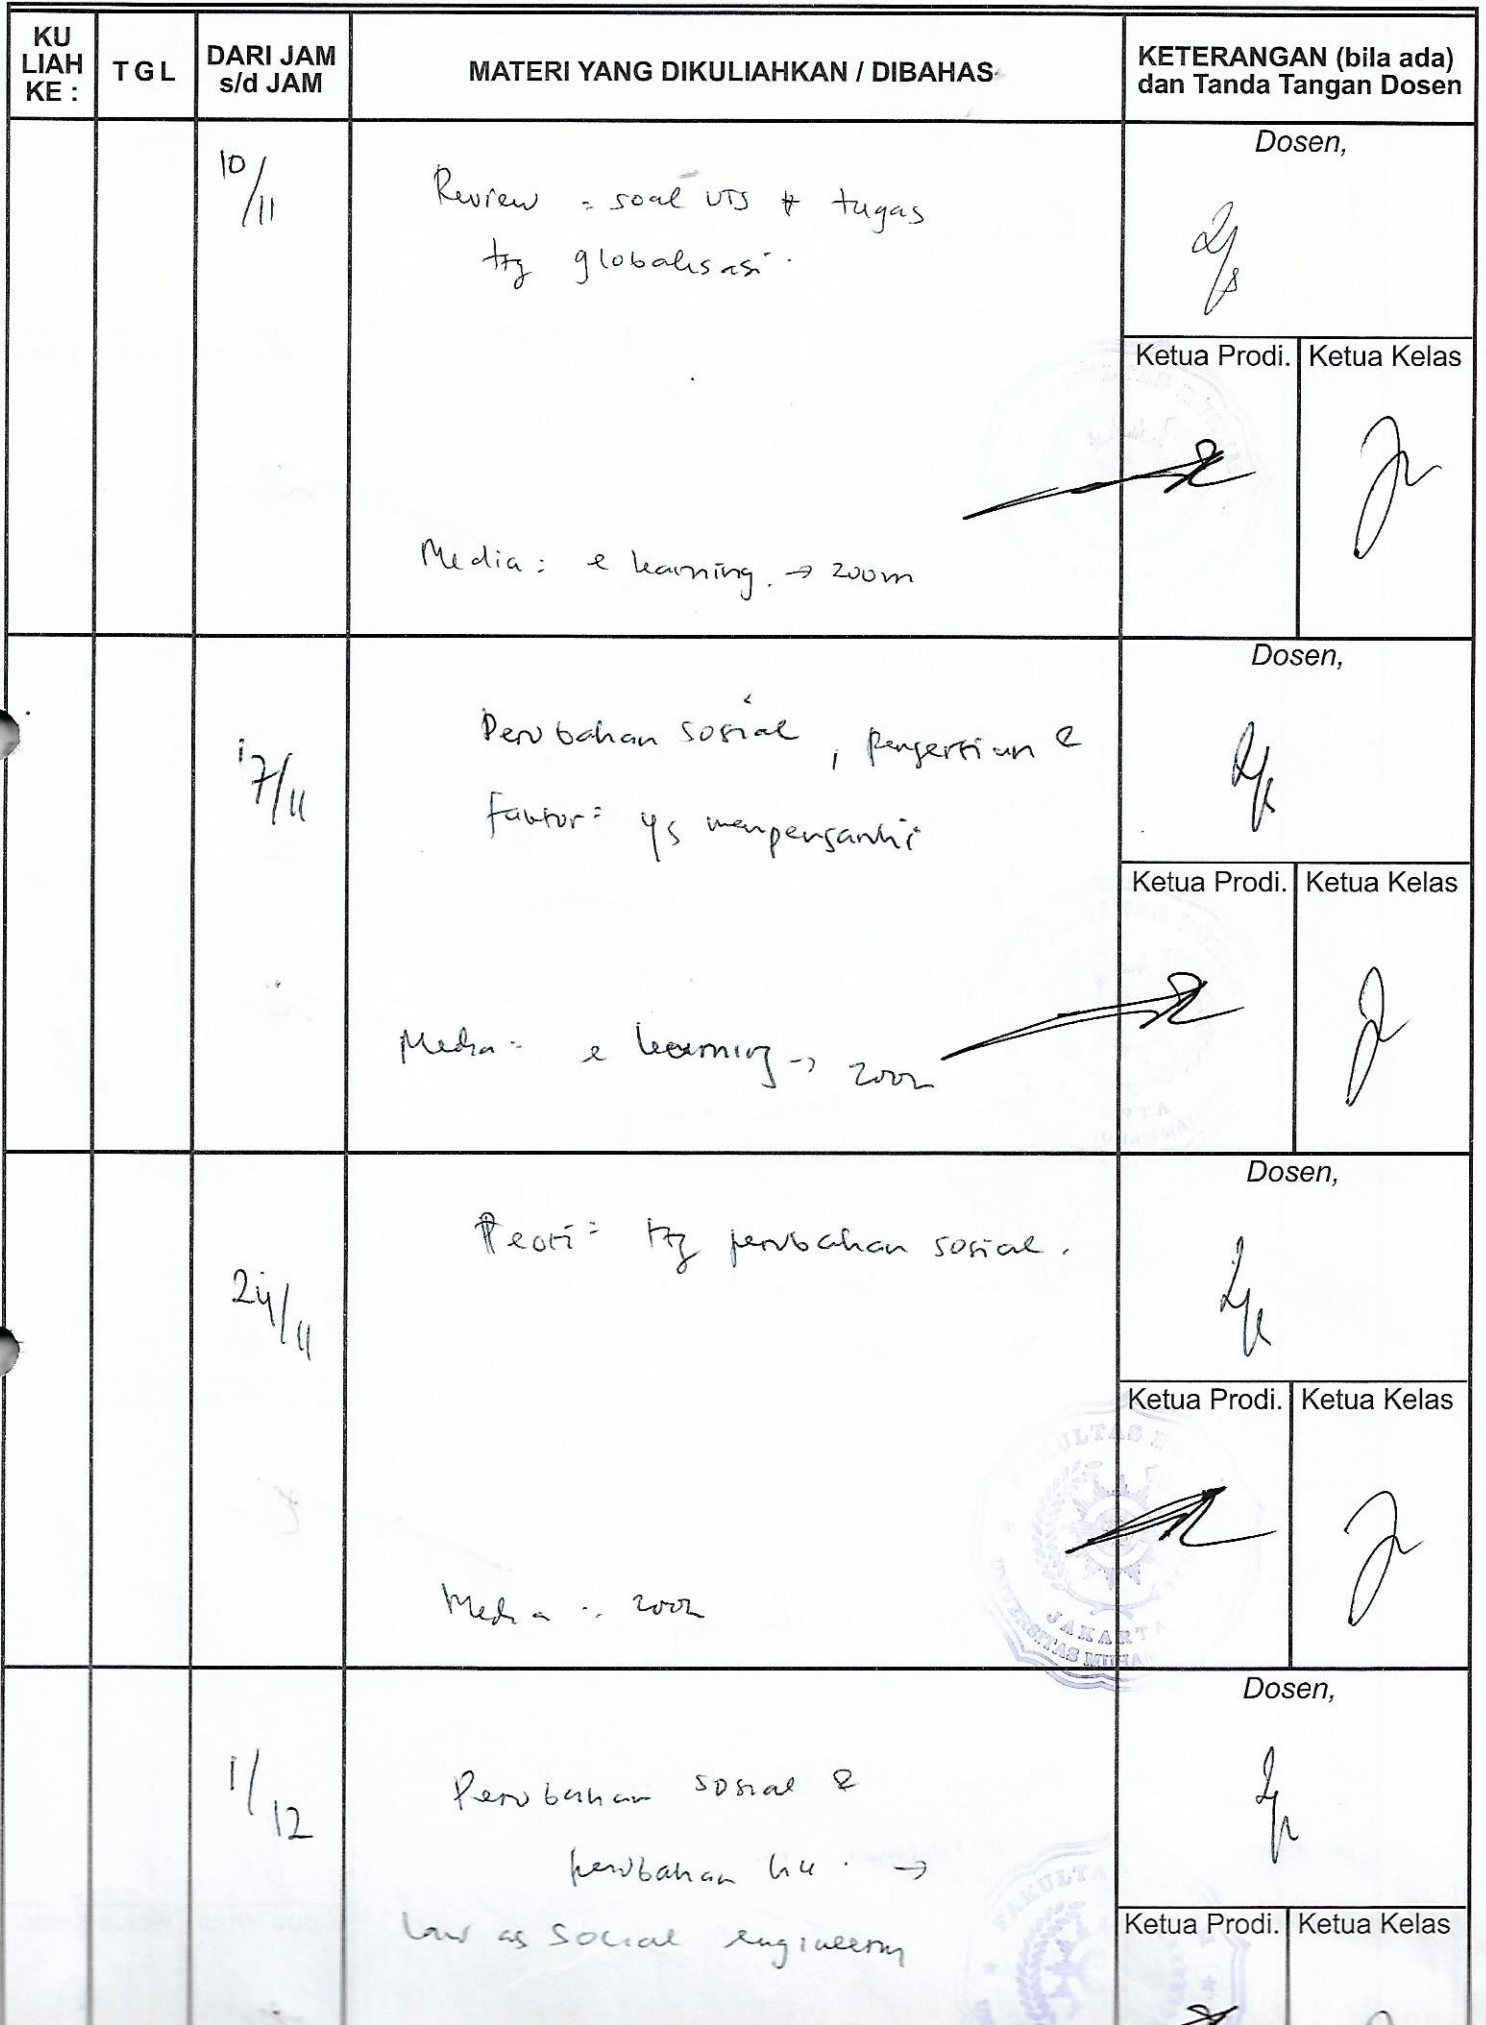 KU LIAH KE :
TGL
DARI JAM s/d JAM
MATERI YANG DIKULIAHKAN / DIBAHAS
KETERANGAN (bila ada) dan Tanda Tangan Dosen
10/11
Review = soal UTS + tugas
ttg globalisasi.
Media : e learning. → zoom
Dosen,
Ketua Prodi.
Ketua Kelas
17/11
Perubahan sosial, pengertian &
faktor= yg mempengaruhi
Media = e learning → zoom
Dosen,
Ketua Prodi.
Ketua Kelas
24/11
Teori= ttg perubahan sosial.
Media : zoom
Dosen,
Ketua Prodi.
Ketua Kelas
FAKULTAS
JAKARTA
UNIVERSITAS MUHA
1/12
Perubahan sosial &
perubahan hu. →
Law as social engineering
Dosen,
Ketua Prodi.
Ketua Kelas
FAKULTA